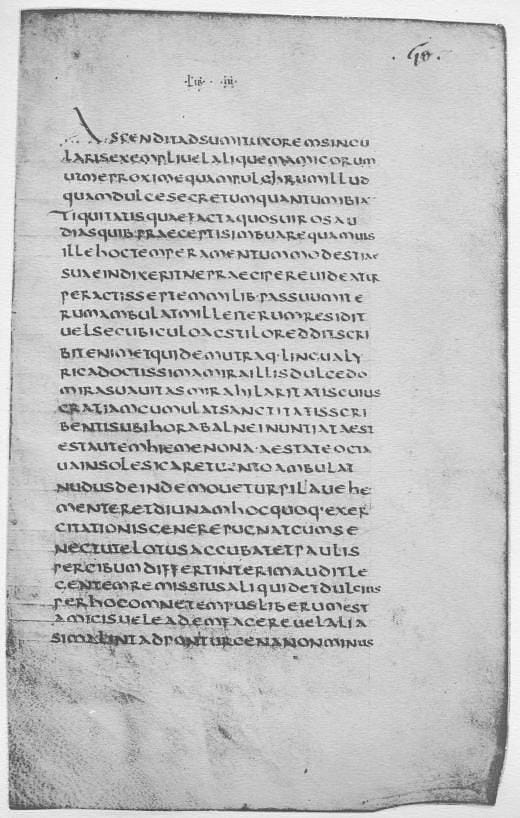 ·LIB· ·III·
ASCENDITADSUMITUXOREMSINCU
LARISEXEMPLIUELALIQUEMAMICORUM
UTMEPROXIMEQUAMPULCHRUMILLUD
QUAMDULCESECRETUMQUANTUMIBIAN
TIQUITATISQUAEFACTAQUOSUIROSAU
DIASQUIB·PRAECEPTISIMBUAREQUAMUIS
ILLEHOCTEMPERAMENTUMMODESTIAE
SUAEINDIXERITNEPRAECIPEREUIDEATUR
PERACTISSEPTEMMILIB·PASSUUMITE
RUMAMBULATMILLEITERUMRESIDIT
UELSECUBICULOACSTILOREDDITSCRI
BITENIMETQUIDEMUTRAQ·LINGUALY
RICADOCTISSIMAMIRAILLISDULCEDO
MIRASUAUITASMIRAHILARITATISCUIUS
GRATIAMCUMULATSANCTITATISSCRI
BENTISUBIHORABALNEINUNTIATAEST
ESTAUTEMHIEMENONA·AESTATEOCTA
UAINSOLESICARETUENTOAMBULAT
NUDUSDEINDEMOUETURPILAUEHE
MENTERETDIUNAMHOCQUOQ·EXER
CITATIONISGENEREPUGNATCUMSE
NECTUTELOTUSACCUBATETPAULIS
PERCIBUMDIFFERTINTERIMAUDITLE
GENTEMREMISSIUSALIQUIDETDULCIUS
PERHOCOMNETEMPUSLIBERUMEST
AMICISUELEADEMFACEREUELALIA
SIMALINTADPONITURCENANONMINUS